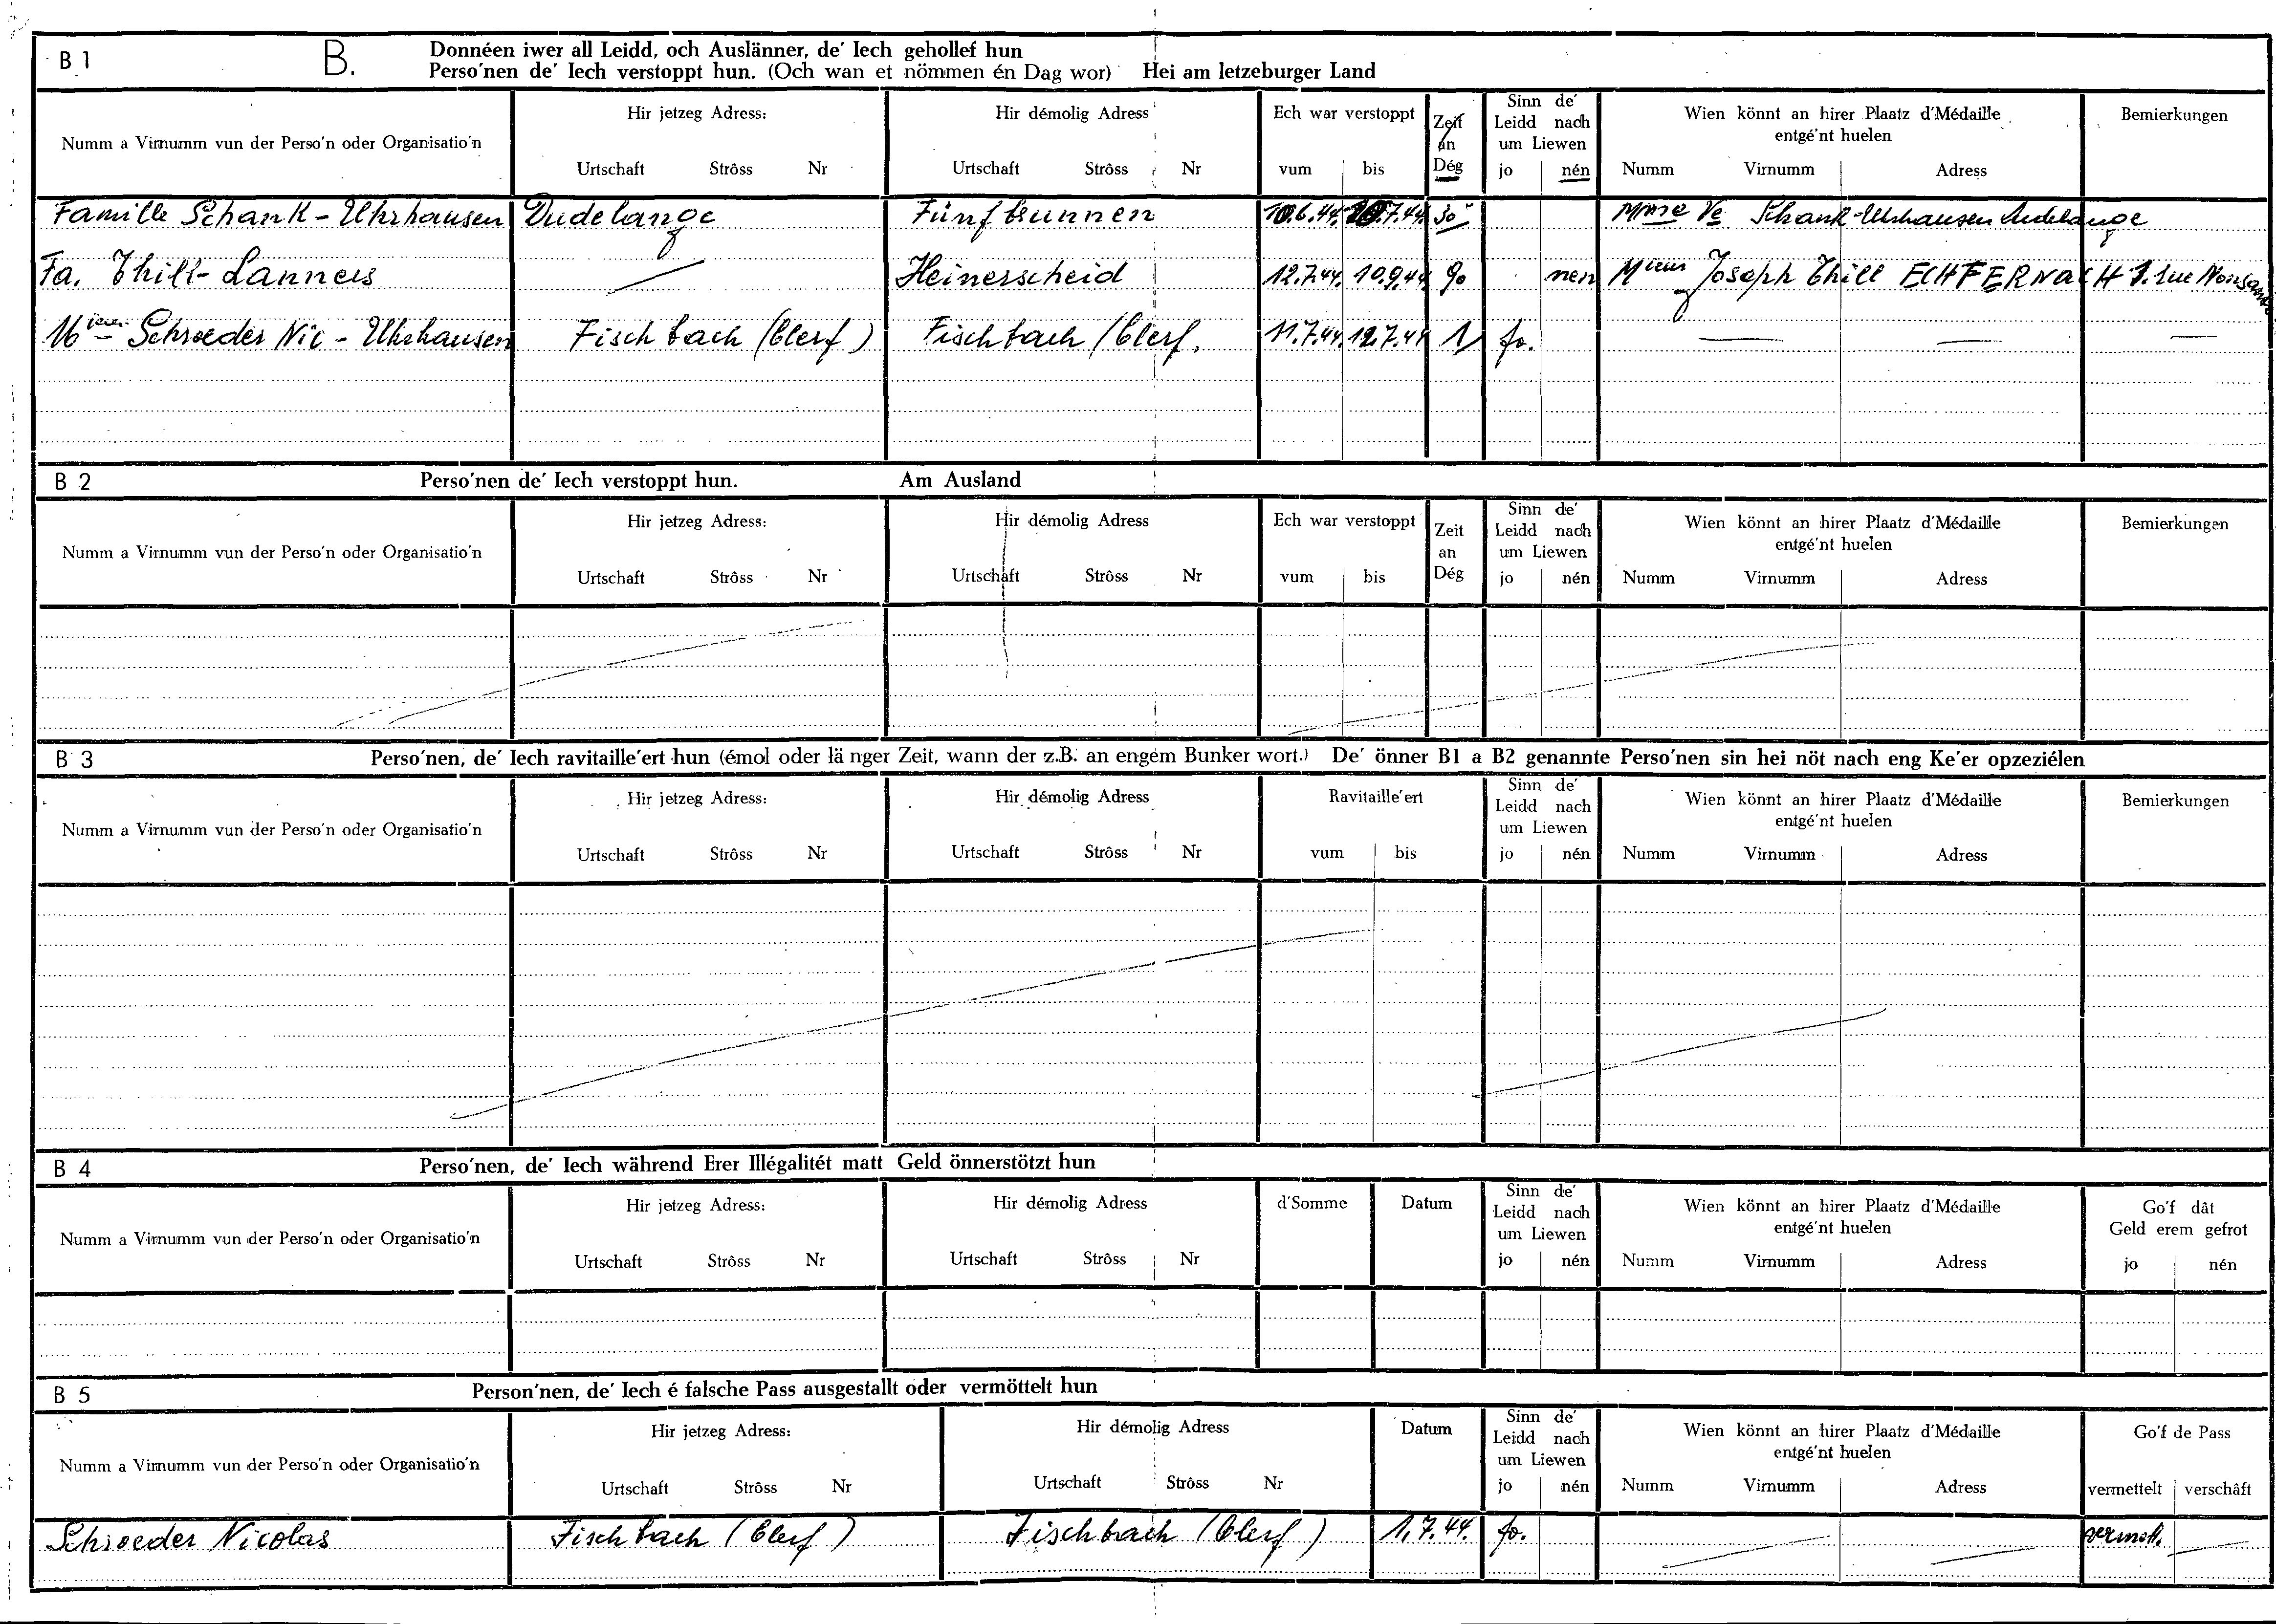 B 1 B. Donnéen iwer all Leidd, och Auslänner, de' Iech gehollef hun
Perso'nen de' Iech verstoppt hun. (Och wan et nömmen én Dag wor) Hei am letzeburger Land
Numm a Virnumm vun der Perso'n oder Organisatio'n
Hir jetzeg Adress:
Urtschaft Strôss Nr
Hir démolig Adress
Urtschaft Strôss Nr
Ech war verstoppt
vum bis
Zeit
an
Dég
Sinn de'
Leidd nach
um Liewen
jo nén
Wien könnt an hirer Plaatz d'Médaille
entgé'nt huelen
Numm Virnumm Adress
Bemierkungen
Famille Schank - Uhrhausen Dudelange Fünfbrunnen 10.6.44. 7.44. 30 Mme Ve Schank-Uhrhausen Dudelange
Fa. Thill - Lanners Heinerscheid 12.7.44. 10.9.44. 90 nen Joseph Thill ECHTERNACH
Schroeder Nic - Uhrhausen Fischbach (Clerf) Fischbach (Clerf. 11.7.44. 12.7.44 1 jo.
B 2 Perso'nen de' Iech verstoppt hun. Am Ausland
Numm a Virnumm vun der Perso'n oder Organisatio'n
Hir jetzeg Adress:
Urtschaft Strôss Nr
Hir démolig Adress
Urtschaft Strôss Nr
Ech war verstoppt
vum bis
Zeit
an
Dég
Sinn de'
Leidd nach
um Liewen
jo nén
Wien könnt an hirer Plaatz d'Médaille
entgé'nt huelen
Numm Virnumm Adress
Bemierkungen
B 3 Perso'nen, de' Iech ravitaille'ert hun (émol oder lä nger Zeit, wann der z.B. an engem Bunker wort.) De' önner B1 a B2 genannte Perso'nen sin hei nöt nach eng Ke'er opzeziélen
Numm a Virnumm vun der Perso'n oder Organisatio'n
Hir jetzeg Adress:
Urtschaft Strôss Nr
Hir démolig Adress
Urtschaft Strôss Nr
Ravitaille'ert
vum bis
Sinn de'
Leidd nach
um Liewen
jo nén
Wien könnt an hirer Plaatz d'Médaille
entgé'nt huelen
Numm Virnumm Adress
Bemierkungen
B 4 Perso'nen, de' Iech während Erer Illégalitét matt Geld önnerstötzt hun
Numm a Virnumm vun der Perso'n oder Organisatio'n
Hir jetzeg Adress:
Urtschaft Strôss Nr
Hir démolig Adress
Urtschaft Strôss Nr
d'Somme
Datum
Sinn de'
Leidd nach
um Liewen
jo nén
Wien könnt an hirer Plaatz d'Médaille
entgé'nt huelen
Numm Virnumm Adress
Go'f dât
Geld erem gefrot
jo nén
B 5 Person'nen, de' Iech é falsche Pass ausgestallt oder vermöttelt hun
Numm a Virnumm vun der Perso'n oder Organisatio'n
Hir jetzeg Adress:
Urtschaft Strôss Nr
Hir démolig Adress
Urtschaft Strôss Nr
Datum
Sinn de'
Leidd nach
um Liewen
jo nén
Wien könnt an hirer Plaatz d'Médaille
entgé'nt huelen
Numm Virnumm Adress
Go'f de Pass
vermettelt verschâft
Schroeder Nicolas Fischbach (Clerf) Fischbach (Clerf) 1.7.44. jo. vermett.